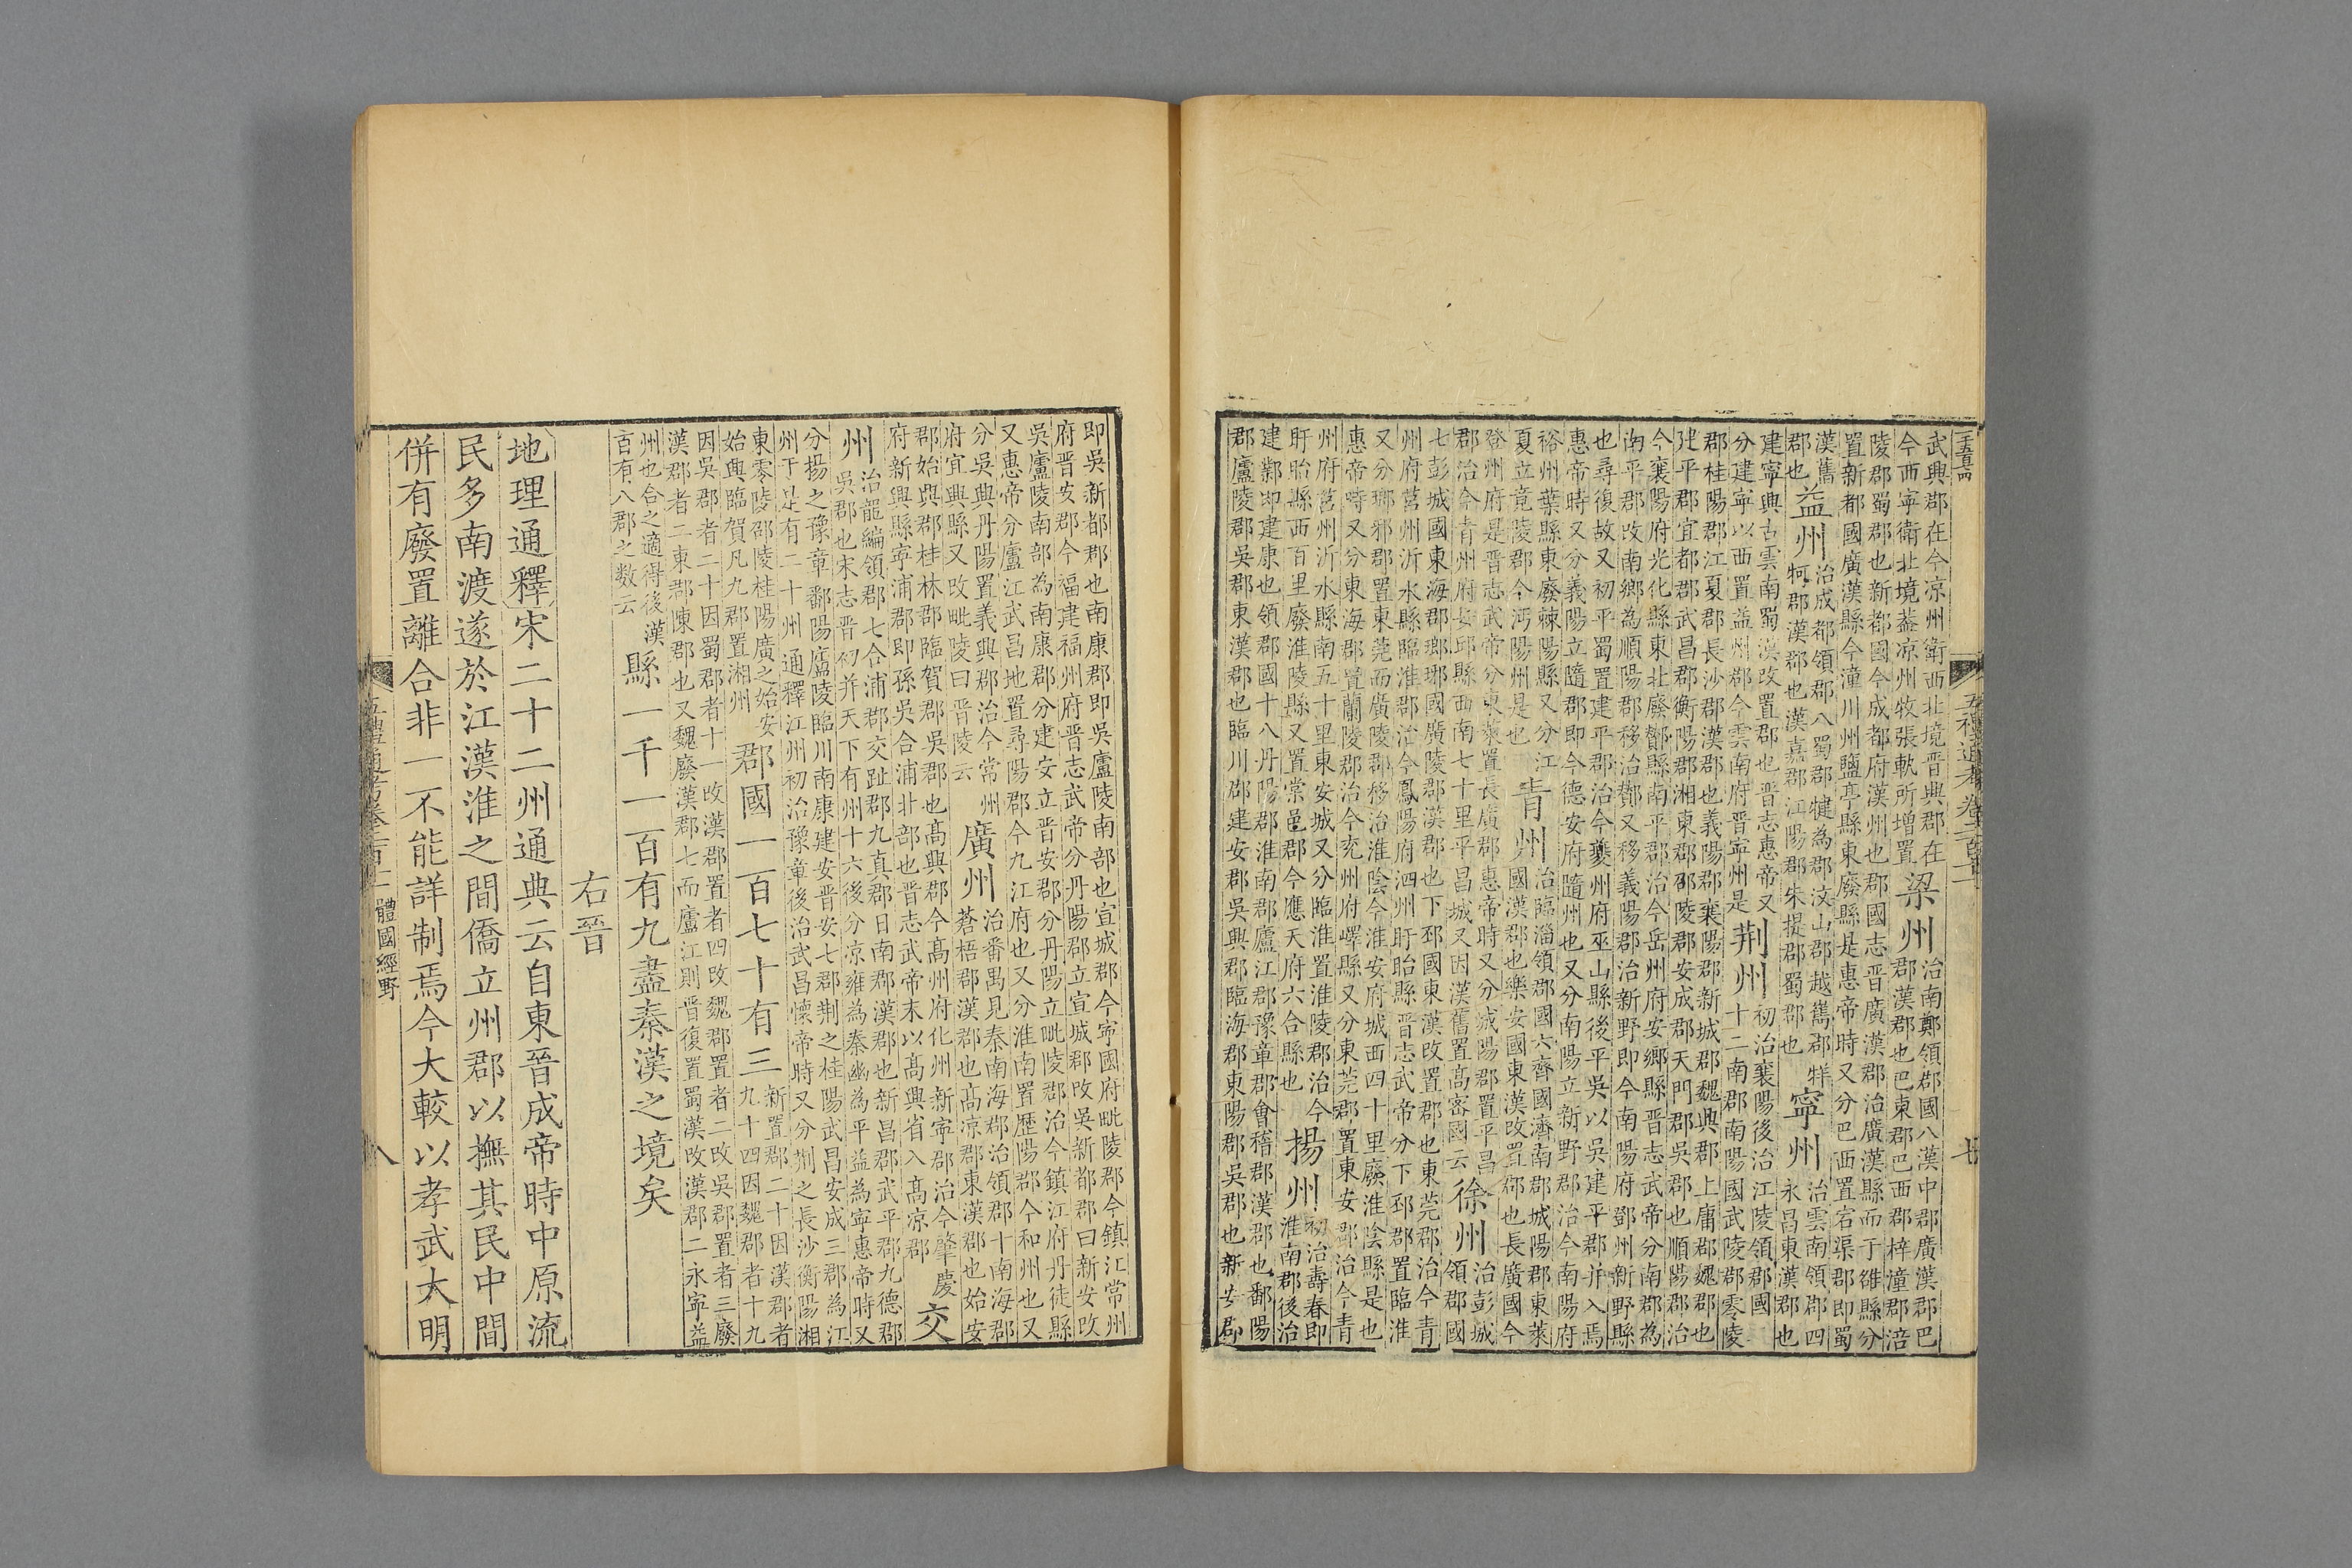 武興郡在今凉州衛西北境晋興郡在
今西寧衛北境葢凉州牧張軌所增置
梁州
治南鄭領郡國八漢中郡廣漢郡巴
郡漢郡也巴東郡巴西郡梓潼郡涪
陵郡蜀郡也新都國今成都府漢州也郡國志晋廣漢郡治廣漢縣而于雒縣分
置新都國廣漢縣今潼川州鹽亭縣東廢縣是惠帝時又分巴西置宕渠郡即蜀
漢舊
郡也
益州
治成都領郡八蜀郡犍為郡汶山郡越巂郡牂
牁郡漢郡也漢嘉郡江陽郡朱提郡蜀郡也
寧州
治雲南領郡四
永昌東漢郡也
建寧興古雲南蜀漢改置郡也晋志惠帝又
分建寧以西置益州郡今雲南府晋寧州是
荆州
初治襄陽後治江陵領郡國
十二南郡南陽國武陵郡零陵
郡桂陽郡江夏郡長沙郡漢郡也義陽郡襄陽郡新城郡魏興郡上庸郡魏郡也
建平郡宜都郡武昌郡衡陽郡湘東郡邵陵郡安成郡天門郡吳郡也順陽郡治
今襄陽府光化縣東北廢酇縣南平郡治今岳州府安鄉縣晋志武帝分南郡為
南平郡改南鄉為順陽郡移治酇又移義陽郡治新野即今南陽府鄧州新野縣
也尋復故又初平蜀置建平郡治今夔州府巫山縣後平吳以吳建平郡并入焉
惠帝時又分義陽立隨郡即今德安府隨州也又分南陽立新野郡治今南陽府
裕州葉縣東廢棘陽縣又分江
夏立竟陵郡今沔陽州是也
青州
治臨淄領郡國六齊國濟南郡城陽郡東萊
國漢郡也樂安國東漢改置郡也長廣國今
登州府是晋志武帝分東萊置長廣郡惠帝時又分城陽郡置平昌
郡治今青州府安邱縣西南七十里平昌城又因漢舊置高密國云
徐州
治彭城
領郡國
七彭城國東海郡瑯琊國廣陵郡漢郡也下邳國東漢改置郡也東莞郡治今青
州府莒州沂水縣臨淮郡治今鳳陽府泗州盱眙縣晋志武帝分下邳郡置臨淮
又分瑯邪郡置東莞而廣陵郡移治淮陰今淮安府城西四十里廢淮陰縣是也
惠帝時又分東海郡置蘭陵郡治今兖州府嶧縣又分東莞郡置東安郡治今青
州府莒州沂水縣南五十里東安城又分臨淮置淮陵郡治今
盱眙縣西百里廢淮陵縣又置棠邑郡今應天府六合縣也
揚州
初治壽春即
淮南郡後治
建鄴即建康也領郡國十八丹陽郡淮南郡廬江郡豫章郡會稽郡漢郡也鄱陽
郡廬陵郡吳郡東漢郡也臨川郡建安郡吳興郡臨海郡東陽郡吳郡也新安郡
即吳新都郡也南康郡即吳廬陵南部也宣城郡今寧國府毗陵郡今鎮江常州
府晋安郡今福建福州府晋志武帝分丹陽郡立宣城郡改吳新都郡曰新安改
吳廬陵南部為南康郡分建安立晋安郡分丹陽立毗陵郡治今鎮江府丹徒縣
又惠帝分廬江武昌地置尋陽郡今九江府也又分淮南置歷陽郡今和州也又
分吳興丹陽置義興郡治今常州
府宜興縣又改毗陵曰晋陵云
廣州
治番禺見秦南海郡治領郡十南海郡
蒼梧郡漢郡也高凉郡東漢郡也始安
郡始興郡桂林郡臨賀郡吳郡也高興郡今高州府化州新寧郡治今肇慶
府新興縣寧浦郡即孫吳合浦北部也晋志武帝末以高興省入高凉郡
交
州
治龍編領郡七合浦郡交趾郡九真郡日南郡漢郡也新昌郡武平郡九德郡
吳郡也宋志晋初并天下有州十六後分凉雍為秦幽為平益為寧惠帝時又
分揚之豫章鄱陽廬陵臨川南康建安晋安七郡荆之桂陽武昌安成三郡為江
州于是有二十州通釋江州初治豫章後治武昌懷帝時又分荆之長沙衡陽湘
東零陵邵陵桂陽廣之始安
始興臨賀凡九郡置湘州
郡國一百七十有三
新置郡二十因漢郡者
九十四因魏郡者十九
因吳郡者二十因蜀郡者十一改漢郡置者四改魏郡置者二改吳郡置者三廢
漢郡者二東郡陳郡也又魏廢漢郡七而廬江則晋復置蜀漢改漢郡二永寧益
州也合之適得後漢
百有八郡之数云
縣一千一百有九盡秦漢之境矣
右晉
地理通釋宋二十二州通典云自東晉成帝時中原流
民多南渡遂於江漢淮之間僑立州郡以撫其民中間
併有廢置離合非一不能詳制焉今大較以孝武大明
五禮通考卷二百十一
體國經野
八